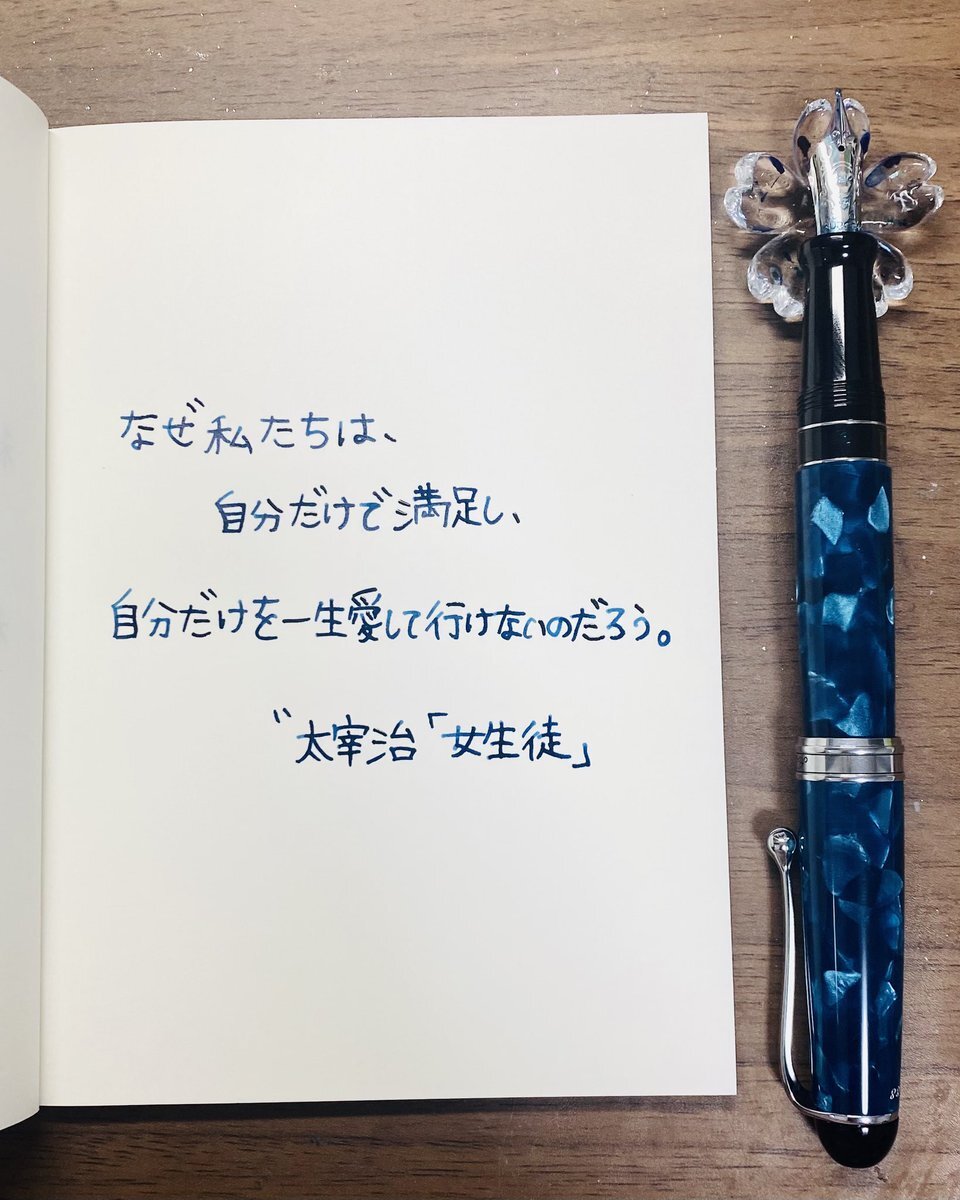 なぜ私たちは、
自分だけで満足し、
自分だけを一生愛して行けないのだろう。
〃太宰治「女生徒」